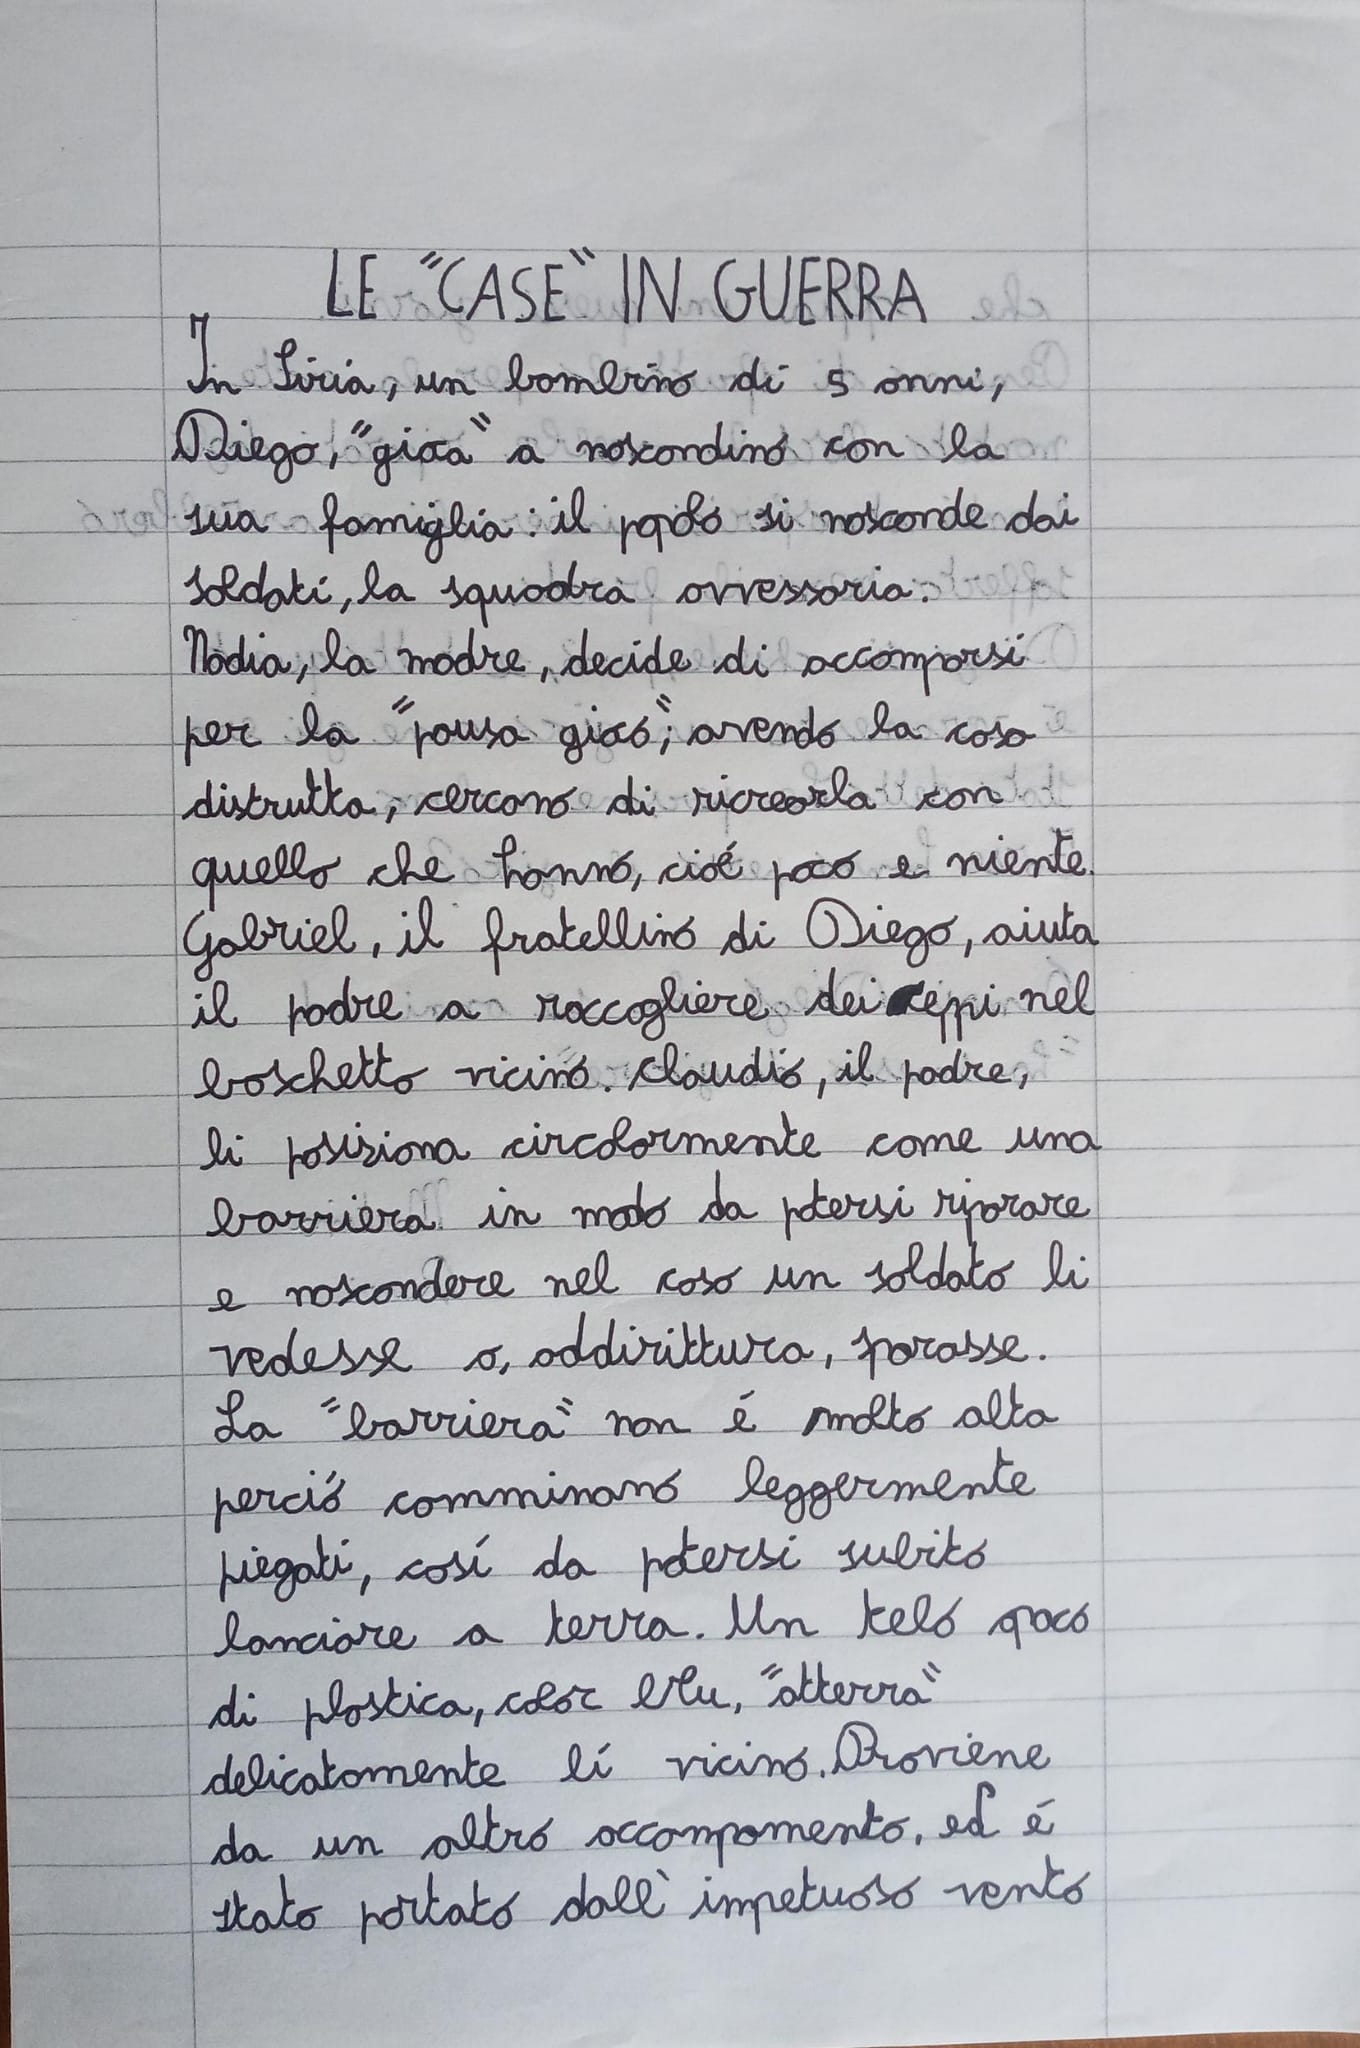 LE "CASE" IN GUERRA
In Siria, un bambino di 5 anni,
Diego, "gioca" a nascondino con la
sua famiglia: il popolo si nasconde dai
soldati, la squadra avversaria.
Nadia, la madre, decide di accamparsi
per la "pausa gioco"; avendo la casa
distrutta, cercano di ricrearla con
quello che hanno, cioé poco e niente.
Gabriel, il fratellino di Diego, aiuta
il padre a raccogliere dei ceppi nel
boschetto vicino. Claudio, il padre,
li posiziona circolarmente come una
barriera in modo da potersi riparare
e nascondere nel caso un soldato li
vedesse o, addirittura, sparasse.
La "barriera" non é molto alta
perció camminano leggermente
piegati, cosí da potersi subito
lanciare a terra. Un telo opaco
di plastica, color blu, "atterra"
delicatamente lí vicino. Proviene
da un altro accampamento, ed é
stato portato dall'impetuoso vento